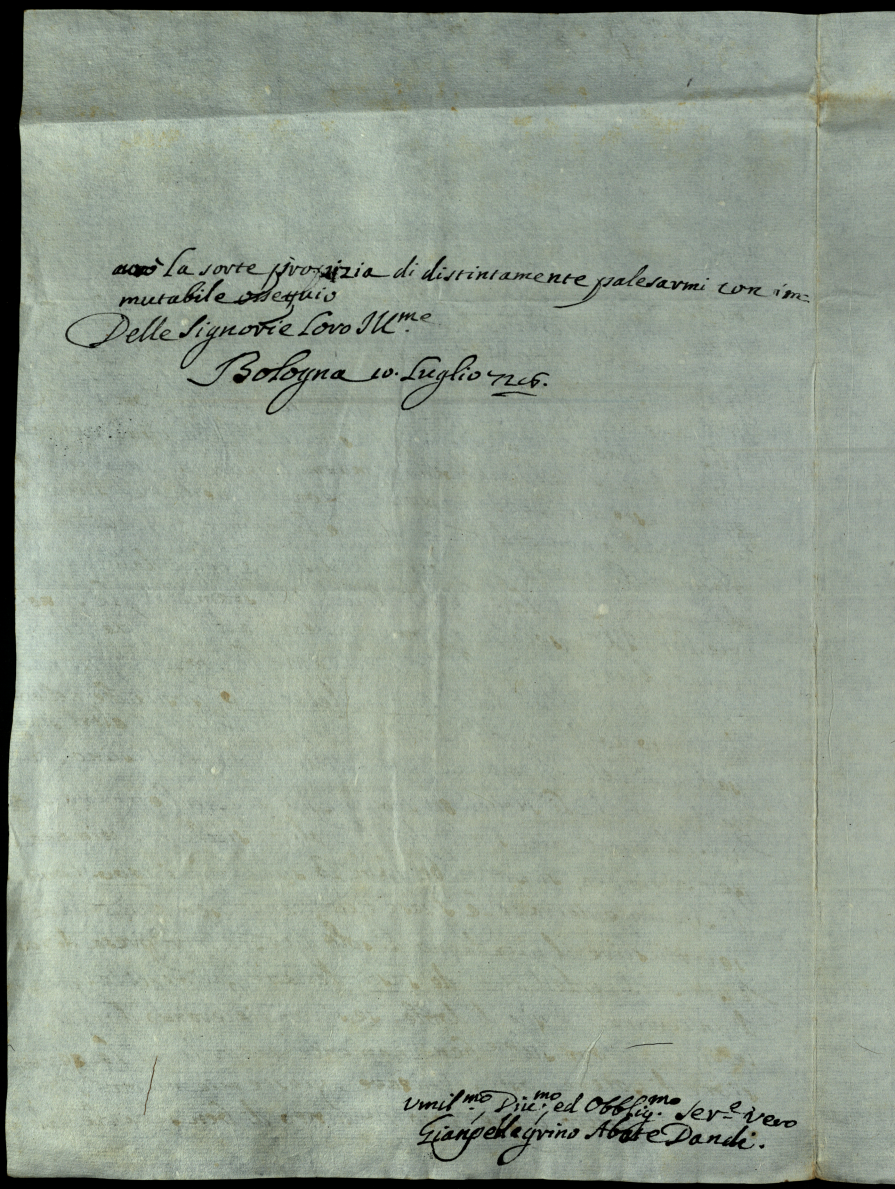 avrò La sorte propizia di distintamente palesarmi con im=
mutabile ossequio
Delle Signorie Loro Ill.me
Bologna 10. Luglio
Umil.mo, Div.mo, ed Obblig.mo Serv.e Vero
Gianpellegrino Abate Dandi.